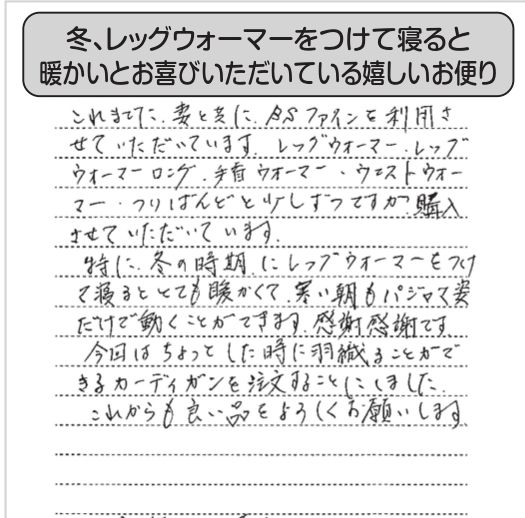 冬、レッグウォーマーをつけて寝ると
暖かいとお喜びいただいている嬉しいお便り
これまでに、妻と共に、BSファインを利用さ
せていただいています。レッグウォーマー、レッグ
ウォーマーロング、手首ウォーマー、ウエストウォー
マー、つりばんどと少しずつですが、購入
させていただいています。
特に、冬の時期にレッグウォーマーをつけ
て寝るととても暖かくて、寒い朝もパジャマ姿
だけで動くことができます。感謝感謝です
今回はちょっとした時に羽織ることがで
きるカーディガンを注文することにしました。
これからも良い品をよろしくお願いします